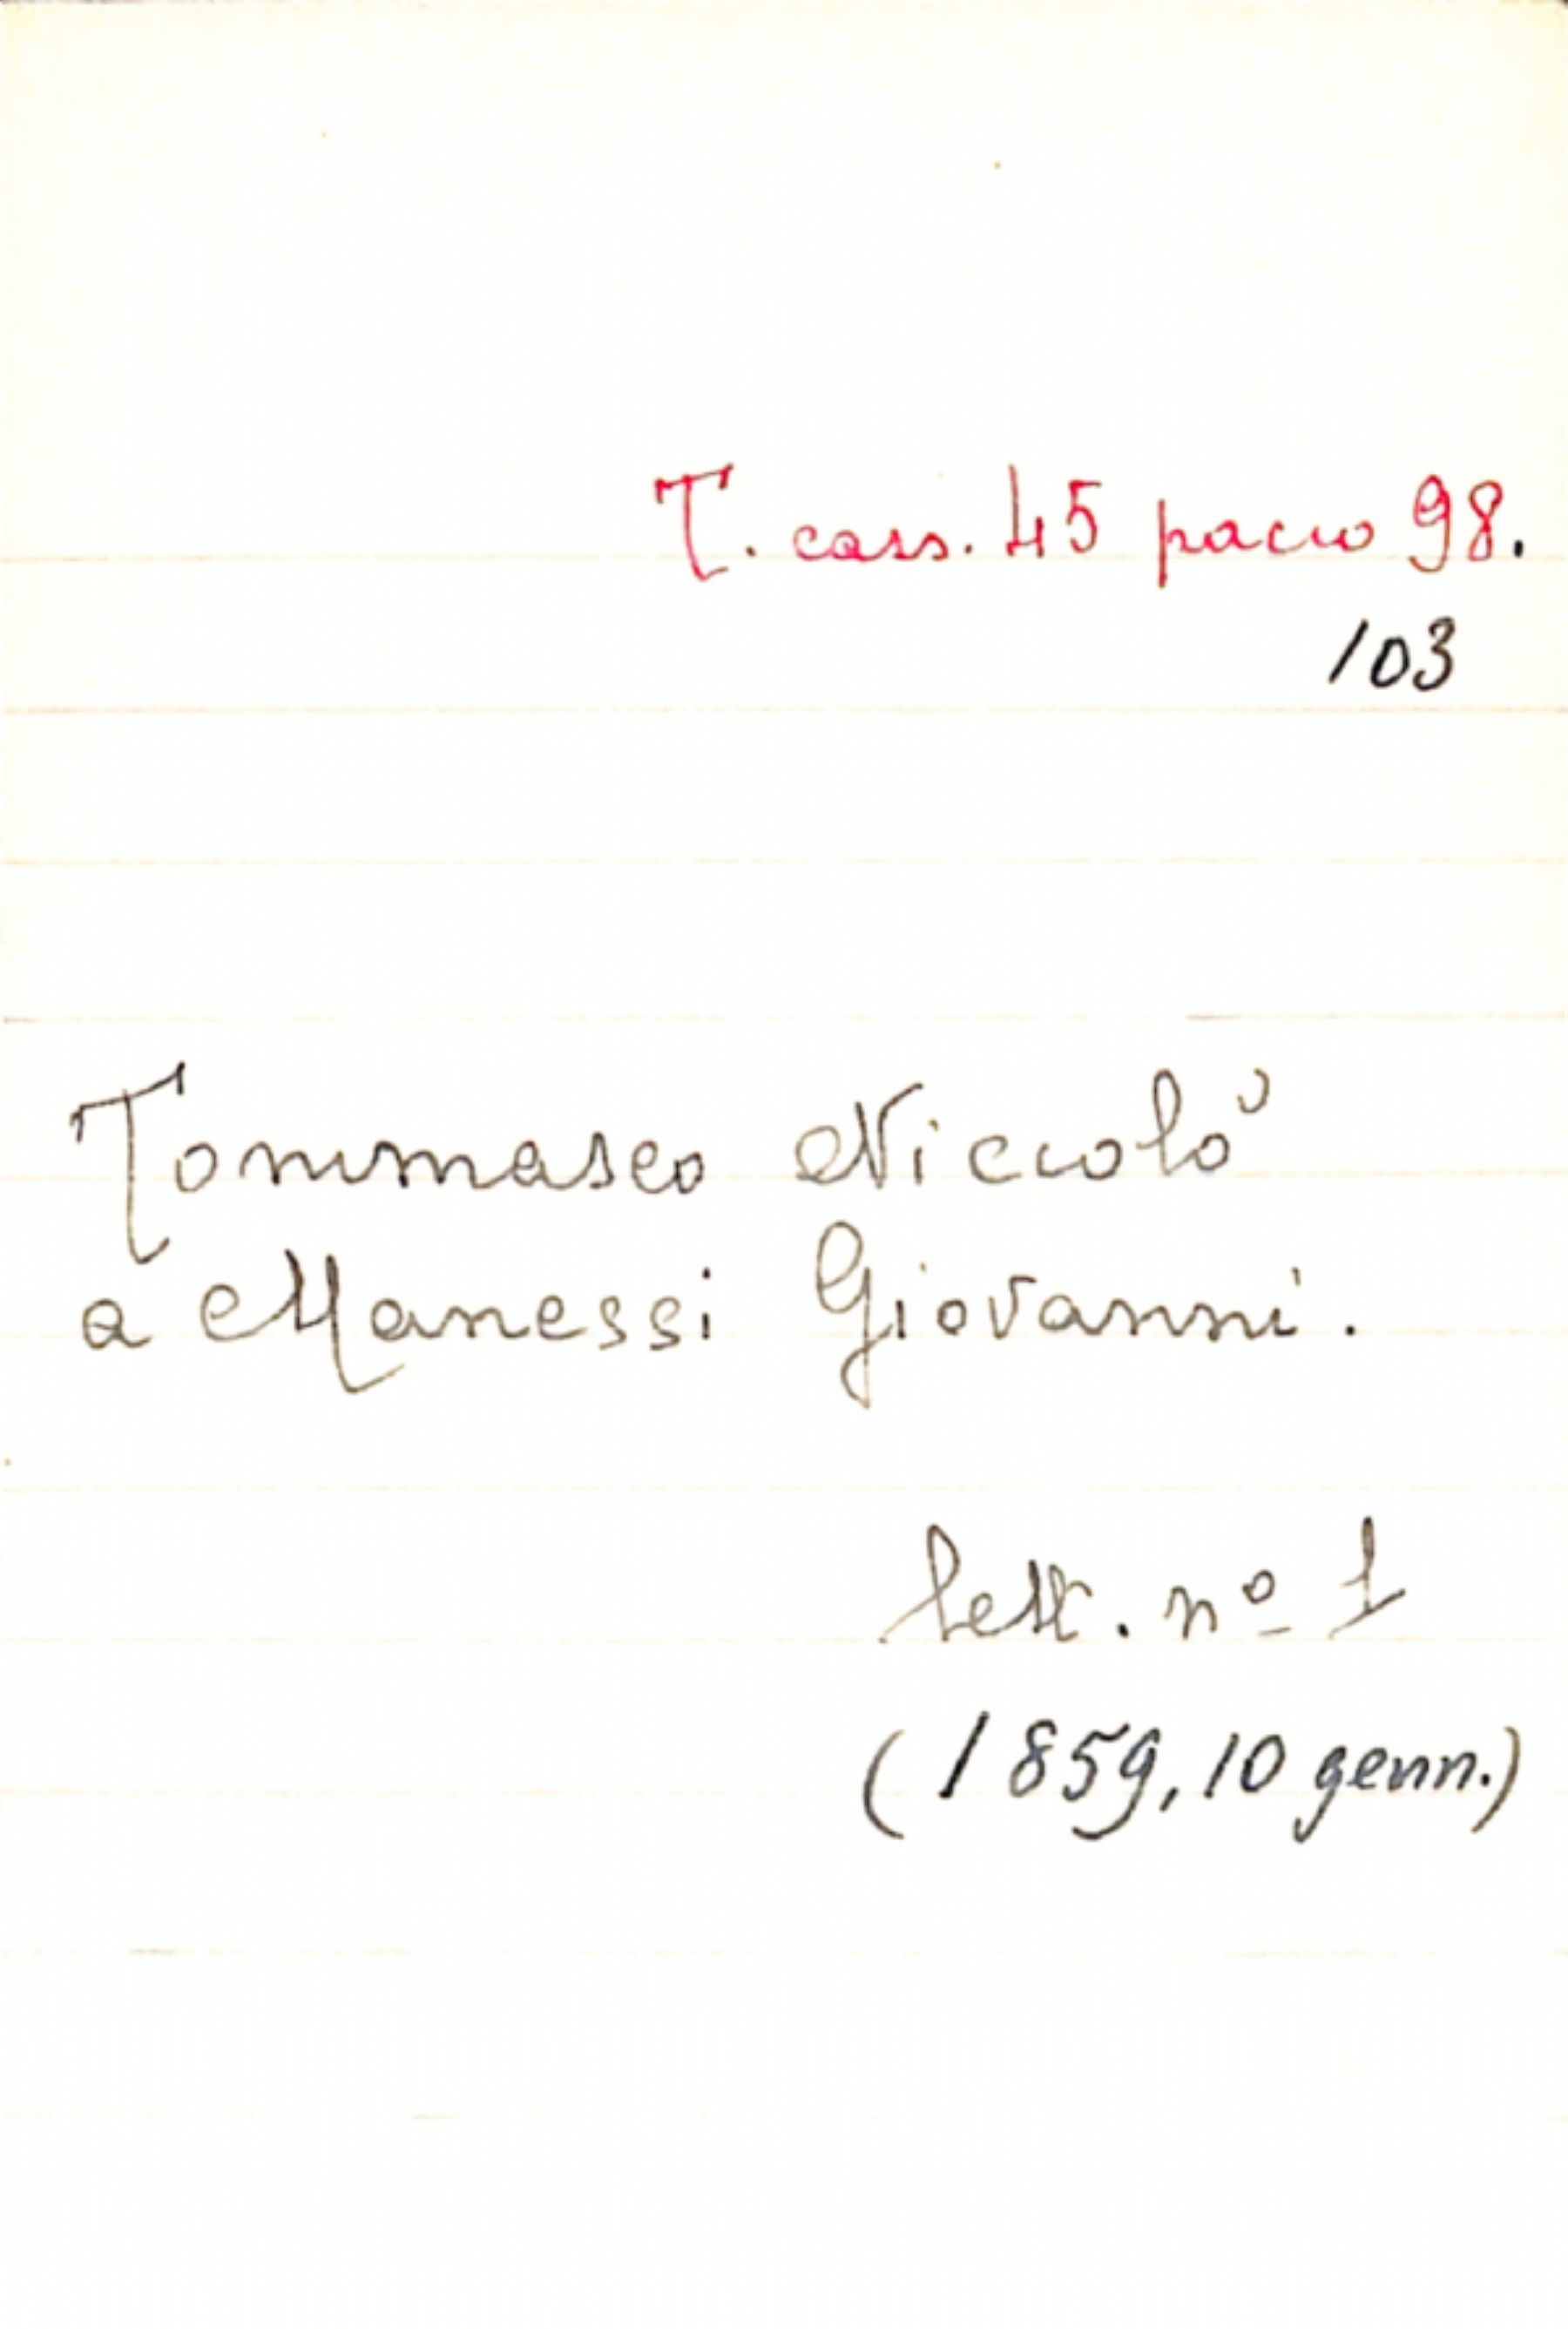 T. cass. 45 pacco 98.
103
Tommaseo Niccolò
a Manessi Giovanni.
lett. nº 1
(1859, 10 genn.)